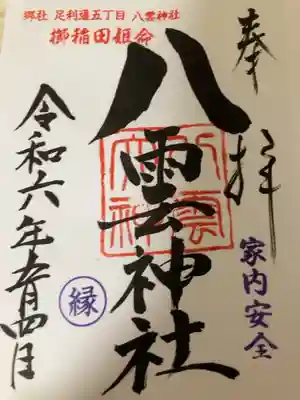 郷社 足利通五丁目 八雲神社
櫛稲田姫命
奉拝
八雲神社
八雲神社
家内安全
縁
令和六年五月四日